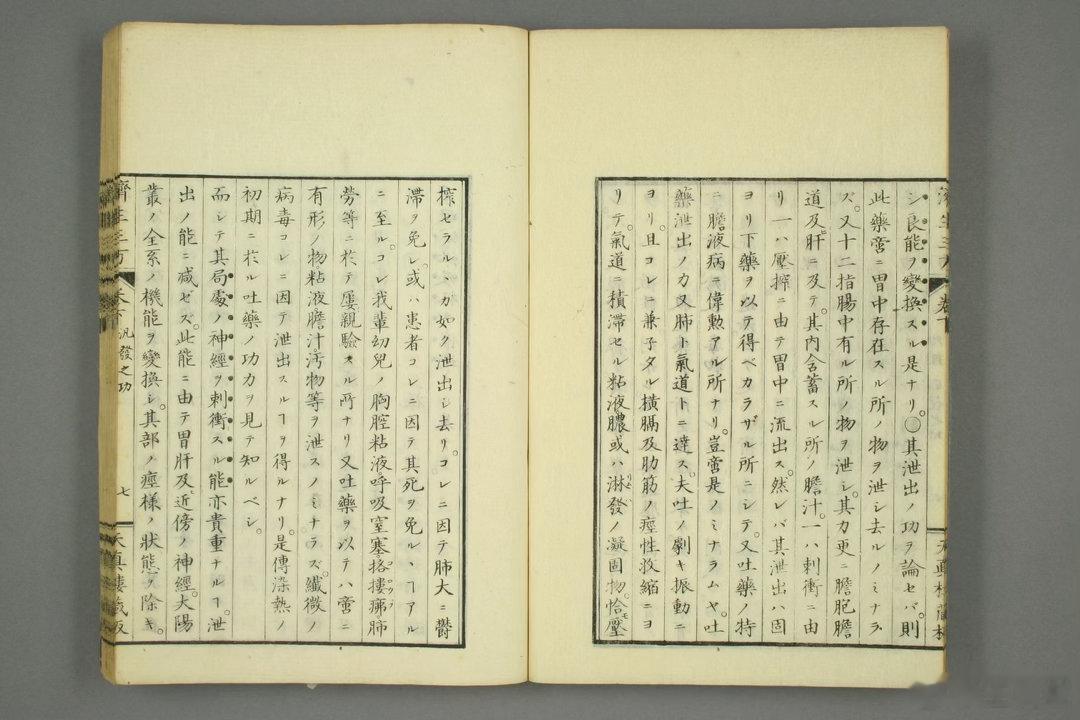 シ良能ヲ變換スル是ナリ。〇其泄出ノ功ヲ論セバ。則
此藥啻ニ胃中存在スル所ノ物ヲ泄シ去ルノミナラ
ズ。又十二指腸中有ル所ノ物ヲ泄シ。其力更ニ膽胞膽
道及肝ニ及テ。其内含蓄スル所ノ膽汁。一ハ刺衝ニ由
リ一ハ壓搾ニ由テ胃中ニ流出ス。然レバ其泄出ハ固
ヨリ下藥ヲ以テ得ベカラザル所ニシテ。又吐藥ノ特
ニ膽液病ニ偉勲アル所ナリ。豈啻是ノミナラムヤ。吐
藥泄出ノ力又肺ト氣道トニ達ス。夫吐ノ劇キ振動ニ
ヨリ。且コレニ兼子タル橫膈及肋筋ノ痙性收縮ニヨ
リテ。氣道ニ積滯セル粘液膿或ハ淋發ノ凝固物。恰モ壓
搾セラルヽガ如ク泄出シ去リ。コレニ因テ肺大ニ鬱
滯ヲ免レ。或ハ患者コレニ因テ其死ヲ免ルヽヿアル
ニ至ル。コレ我輩幼兒ノ胸腔粘液呼吸窒塞挌摟痡肺
勞等ニ於テ屢親驗スル所ナリ又吐藥ヲ以テハ啻ニ
有形ノ物粘液膽汁汚物等ヲ泄スノミナラズ。纖微ノ
病毒コレニ因テ泄出スルヿヲ得ルナリ。是傳染熱ノ
初期ニ於ル吐藥ノ功力ヲ見テ知ルベシ。
而シテ其局處ノ神經ヲ刺衝スル能亦貴重ナルヿ。泄
出ノ能ニ减ゼズ。此能ニ由テ胃肝及近傍ノ神經。太陽
叢ノ全系ノ機能ヲ變換シ。其部ノ痙様ノ狀態ヲ除キ。
濟生三方
卷下 汎發之功
七
天眞樓藏板